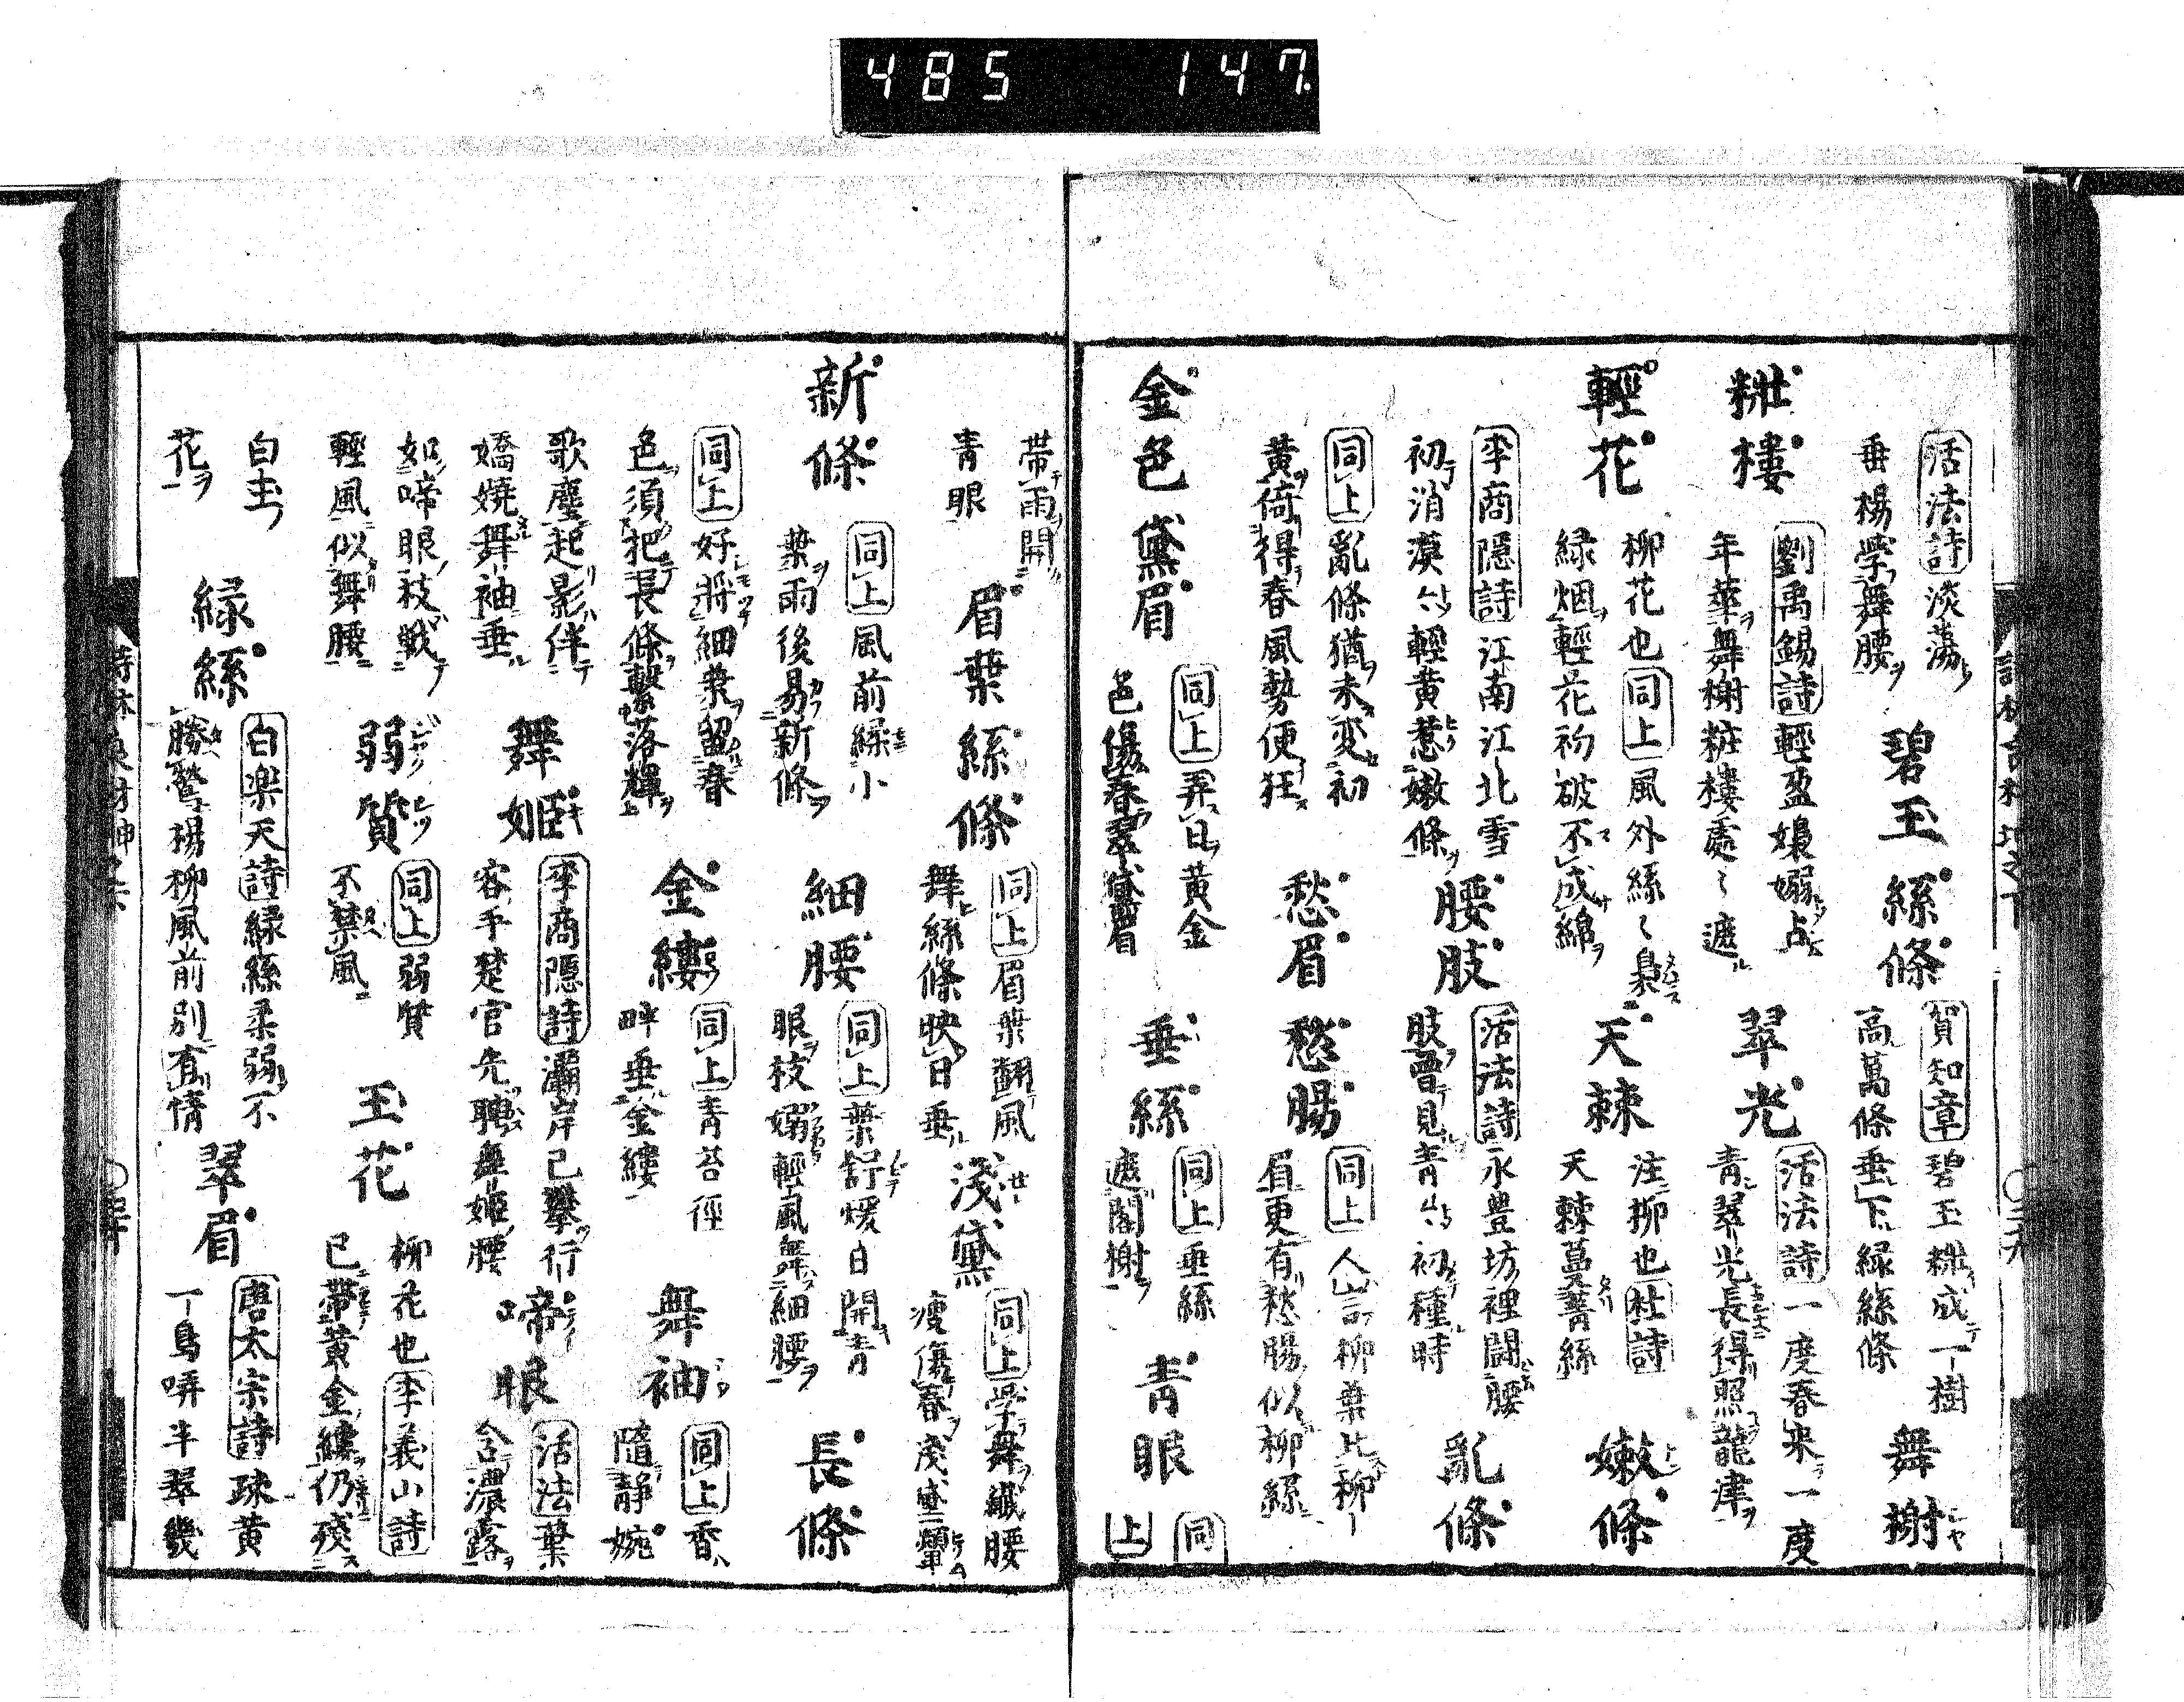 485 147
活法詩 淡蕩
垂楊学舞腰
碧玉絲條
賀知章 碧玉粧成一樹
高萬條垂下緑絲條
舞榭
粧樓
劉禹錫詩 輕盈嬝嫋占
年華舞榭粧樓處〻遮
翠光
活法詩 一度春来一度
青翠光長得照龍津
輕花
柳花也 同上 風外絲〻裊
緑烟輕花初破不成綿
天棘
注柳也 杜詩
天棘蔓菁絲
嫩條
李商隠詩 江南江北雪
初消漠〻輕黄惹嫩條
腰肢
活法詩 永豊坊裡闘腰
肢曽見青〻初種時
亂條
同上 亂條猶未変初
黄倚得春風勢便狂
愁眉
愁腸
同上 人言柳葉比柳
眉更有愁腸似柳絲
金色黛眉
同上 弄日黄金
色傷春翠黛眉
垂絲
同上 垂絲
遮閣榭
青眼
同
上
帯雨開
青眼
眉葉絲條
同上 眉葉翻風
舞絲條映日垂
淺黛
同上 学舞纎腰
痩傷春淺黛顰
新條
同上 風前緑小
葉雨後易新條
細腰
同上 葉舒煖日開青
眼枝嫋輕風舞細腰
長條
同上 好將細葉留春
色須把長條繋落輝
金縷
同上 青苔徑
畔垂金縷
舞袖
同上 香
隨静婉
歌塵起影伴
嬌嬈舞袖垂
舞姫
李商隠詩 灞岸已攀行
客手楚宮先聘舞姫腰
啼眼
活法 葉
含濃露
如啼眼枝戦
輕風似舞腰
弱質
同上 弱質
不禁風
玉花
柳花也 李義山詩
已帯黄金縷仍殘
白玉
花
緑絲
白楽天詩 緑絲柔弱不
勝鶯楊柳風前別有情
翠眉
唐太宗詩 疎黄
一鳥哢半翠幾